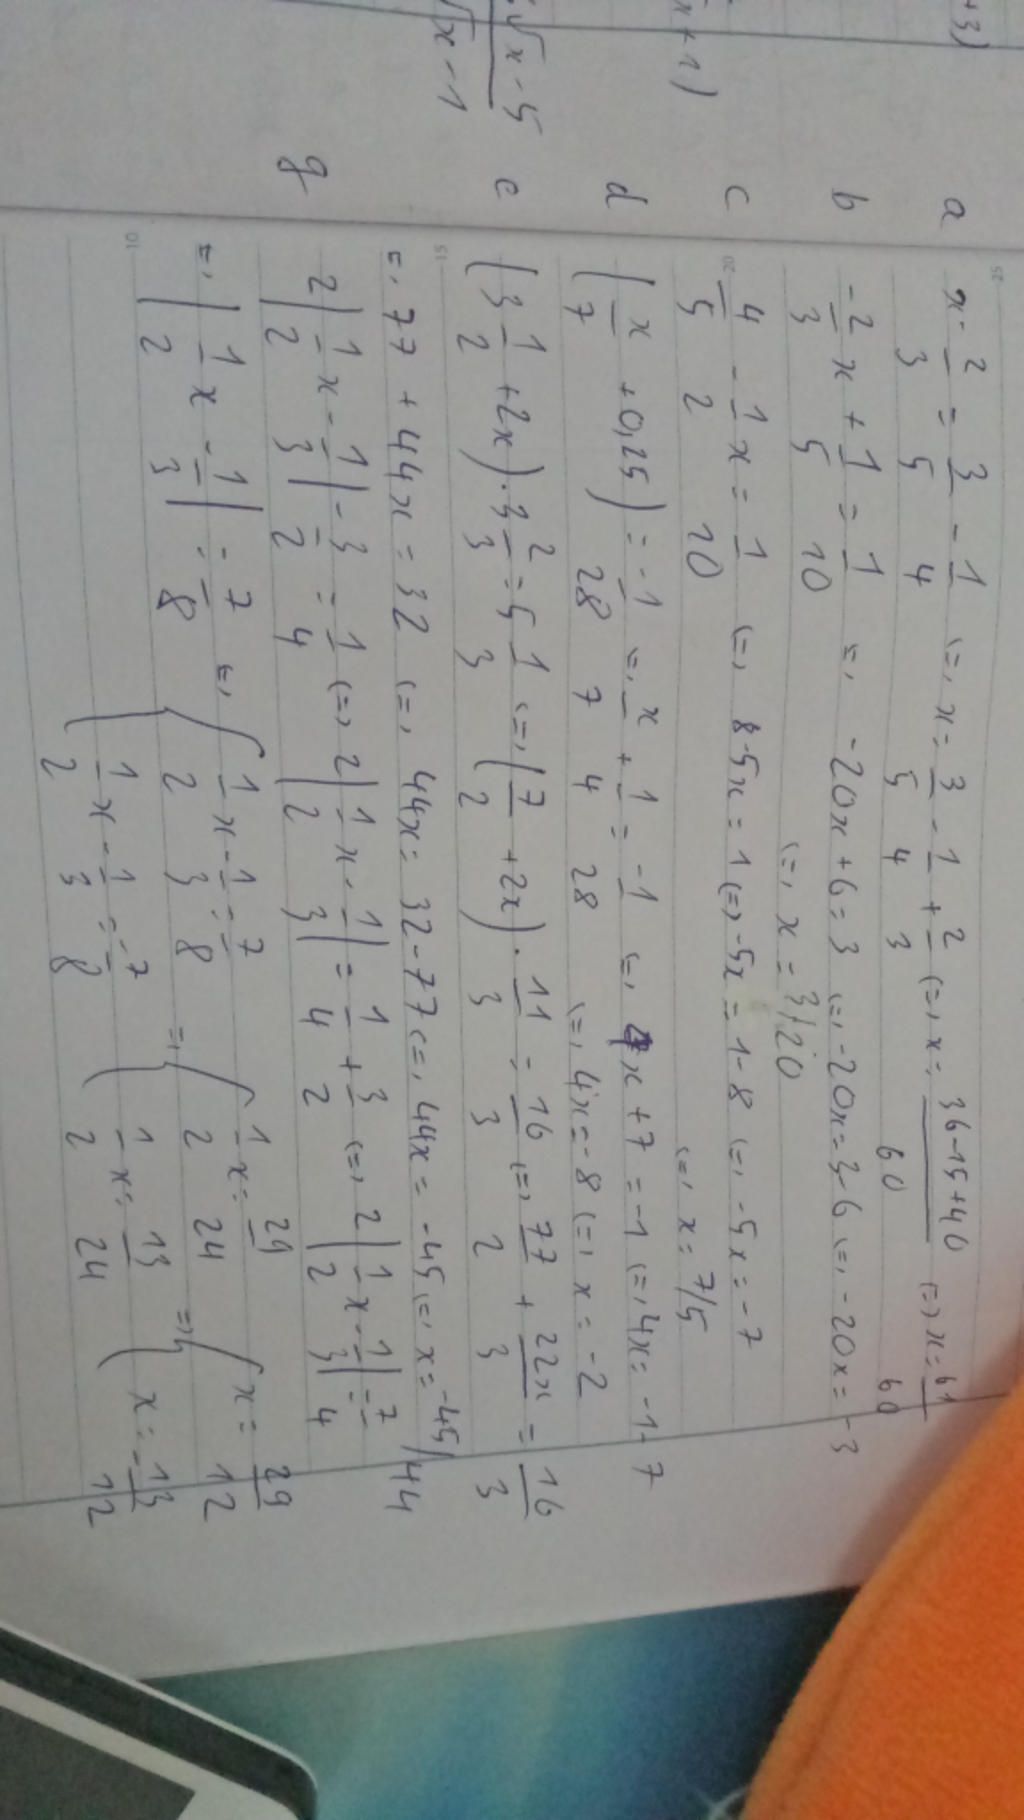 +3)
x+1)
√x-5
√x-1
25
a x-2/3 = 3/5 - 1/4 (=, x = 3/5 - 1/4 + 2/3 (=, x = 36-15+40/60 (=, x = 61/60
b -2/3 x + 1/5 = 1/10 =, -20x+6=3 (=, -20x=3-6 (=, -20x=-3
(=, x = 3/20
20
c 4/5 - 1/2 x = 1/10 (=, 8-5x=1 (=, -5x=1-8 (=, -5x=-7
(=, x = 7/5
d (x/7 + 0,25) = -1/28 =, x/7 + 1/4 = -1/28 (=, 4x+7=-1 (=, 4x=-1-7
(=, 4x=-8 (=, x=-2
e (3 1/2 + 2x) . 3 2/3 = 5 1/3 (=, (7/2 + 2x) . 11/3 = 16/3 (=, 77/2 + 22x/3 = 16/3
15
=, 77 + 44x = 32 (=, 44x = 32-77 (=, 44x = -45 (=, x = -45/44
g 2|1/2 x - 1/3| - 3/2 = 1/4 (=, 2|1/2 x - 1/3| = 1/4 + 3/2 (=, 2|1/2 x - 1/3| = 7/4
=, |1/2 x - 1/3| = 7/8 =, 1/2 x - 1/3 = 7/8 =, 1/2 x = 29/24 =, x = 29/12
10
1/2 x - 1/3 = -7/8 1/2 x = 13/24 x = -13/12